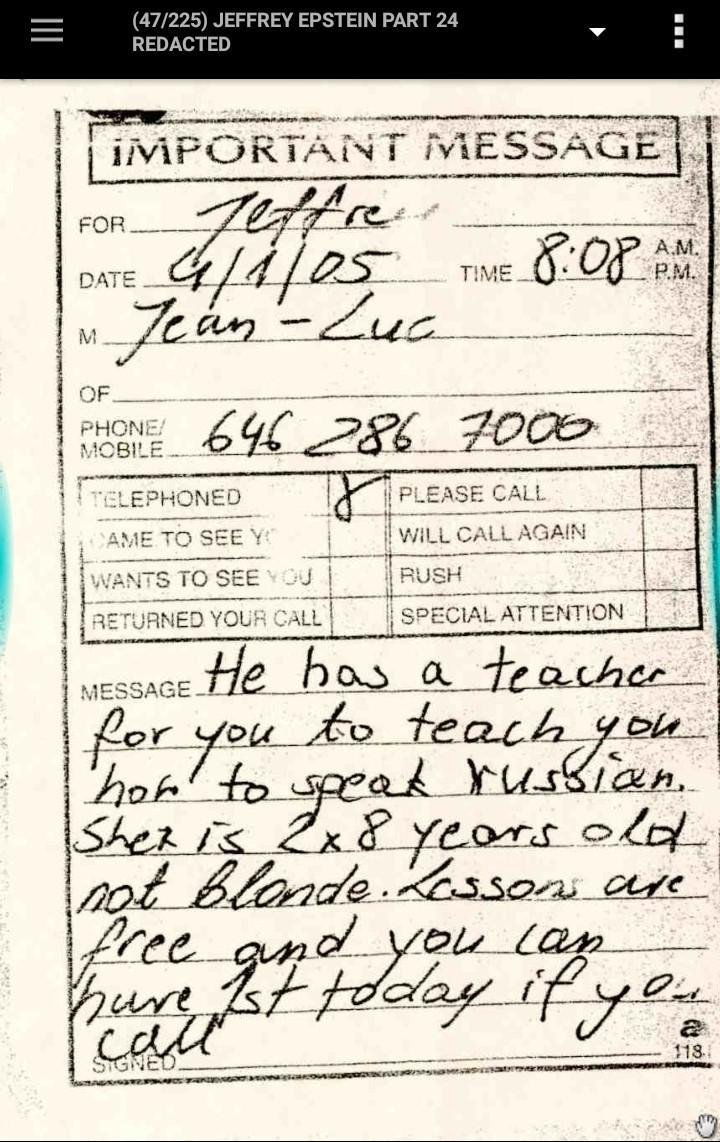 (47/225) JEFFREY EPSTEIN PART 24
REDACTED
IMPORTANT MESSAGE
FOR Jeffre
DATE 4/1/05 TIME 8:08 A.M. P.M.
M Jean-Luc
OF
PHONE/
MOBILE 646 286 7000
TELEPHONED PLEASE CALL
CAME TO SEE YO WILL CALL AGAIN
WANTS TO SEE YOU RUSH
RETURNED YOUR CALL SPECIAL ATTENTION
MESSAGE He has a teacher
for you to teach you
how to speak russian.
She is 2x8 years old
not blonde. Lessons are
free and you can
have 1st today if you
call
SIGNED 118